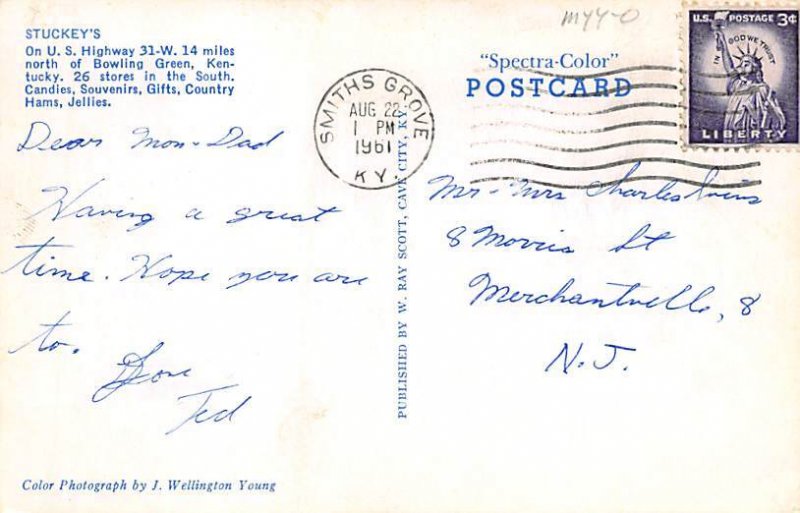 STUCKEY'S
On U. S. Highway 31-W. 14 miles
north of Bowling Green, Ken-
tucky. 26 stores in the South.
Candies, Souvenirs, Gifts, Country
Hams, Jellies.
Dear Mom - Dad
Having a great
time. Hope you are
to.
Ted
Color Photograph by J. Wellington Young
PUBLISHED BY W. RAY SCOTT, CAVE CITY, KY.
SMITHS GROVE
AUG 22
1 PM
1961
KY.
"Spectra-Color"
POSTCARD
U.S. POSTAGE 3¢
IN GOD WE TRUST
LIBERTY
Mr - Mrs Charles
8 Morris St
Merchantville, 8
N.J.